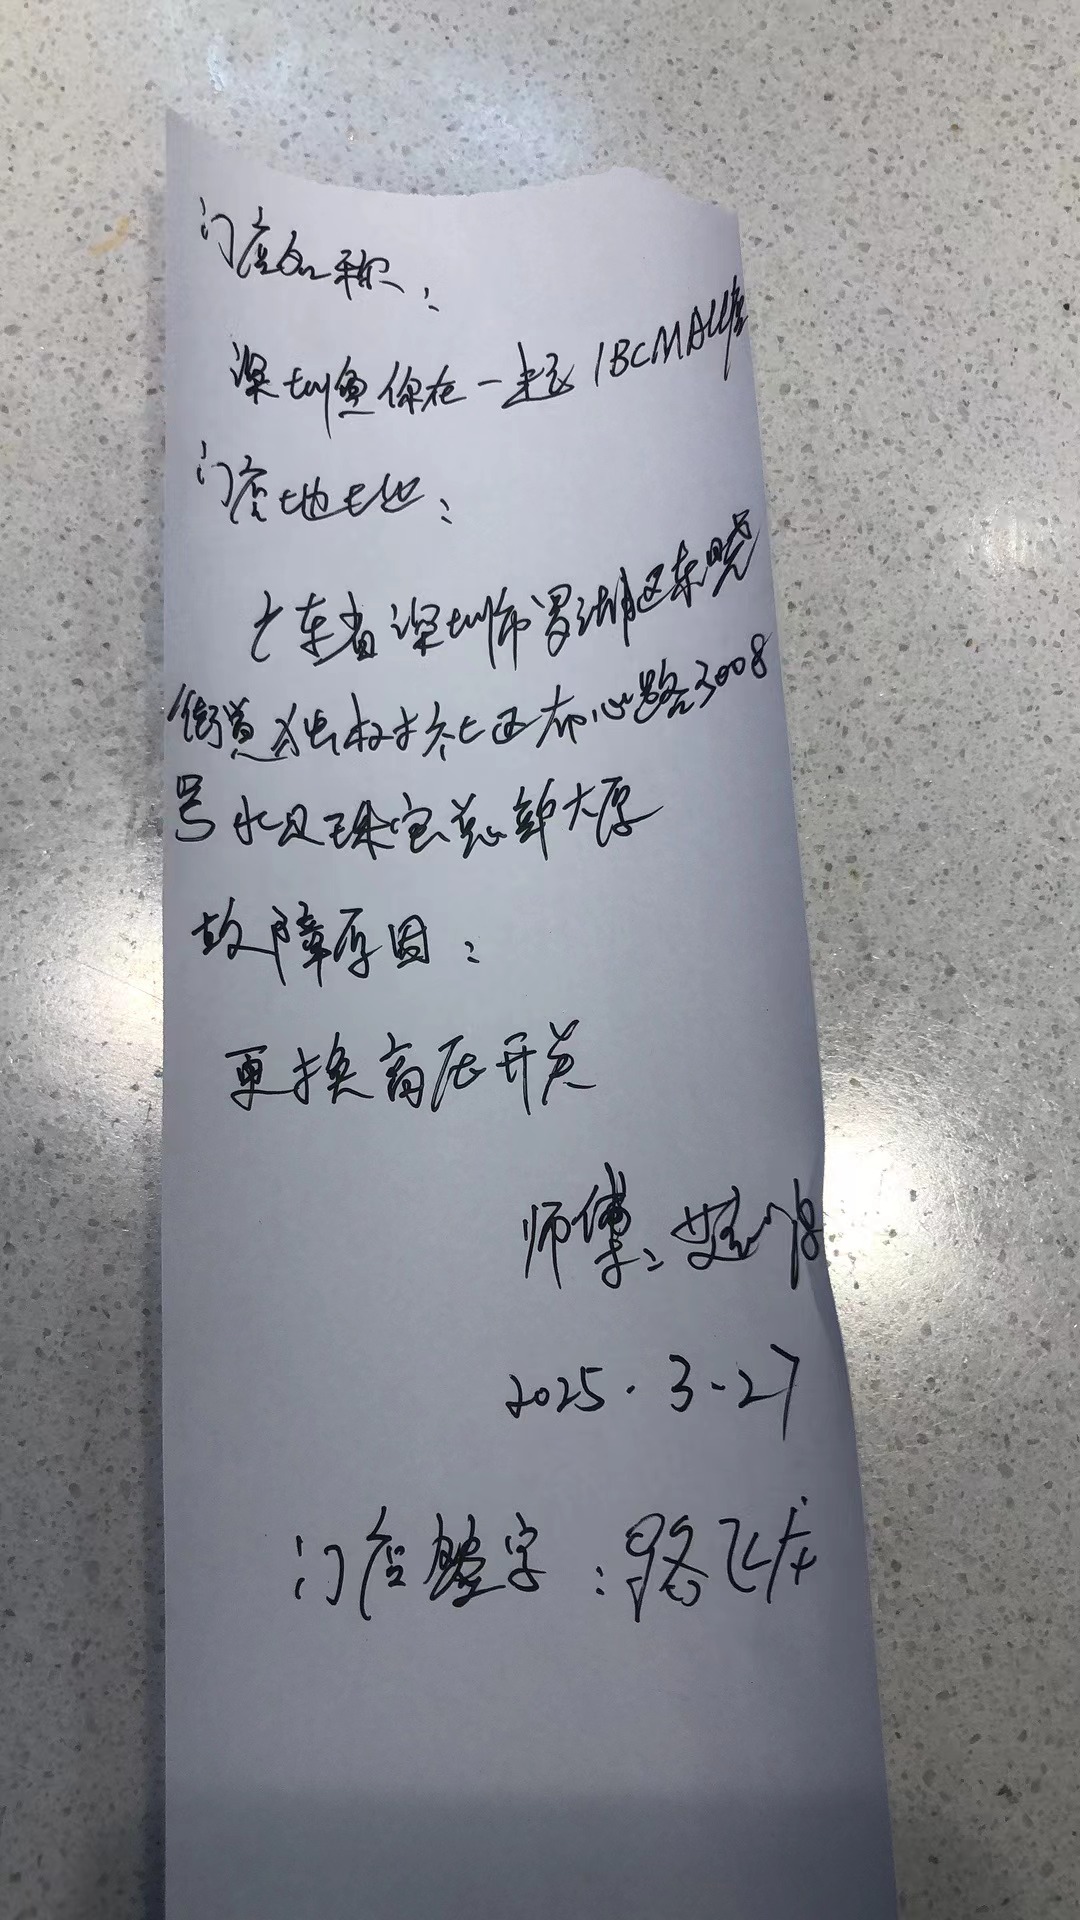 门店名称：
深圳鱼你在一起IBCMALL店
门店地址：
广东省深圳市罗湖区东晓
街道独树社区布心路3008
号水贝珠宝总部大厦
故障原因：
更换高压开关
师傅：
2025.3-27
门店签字：路飞龙